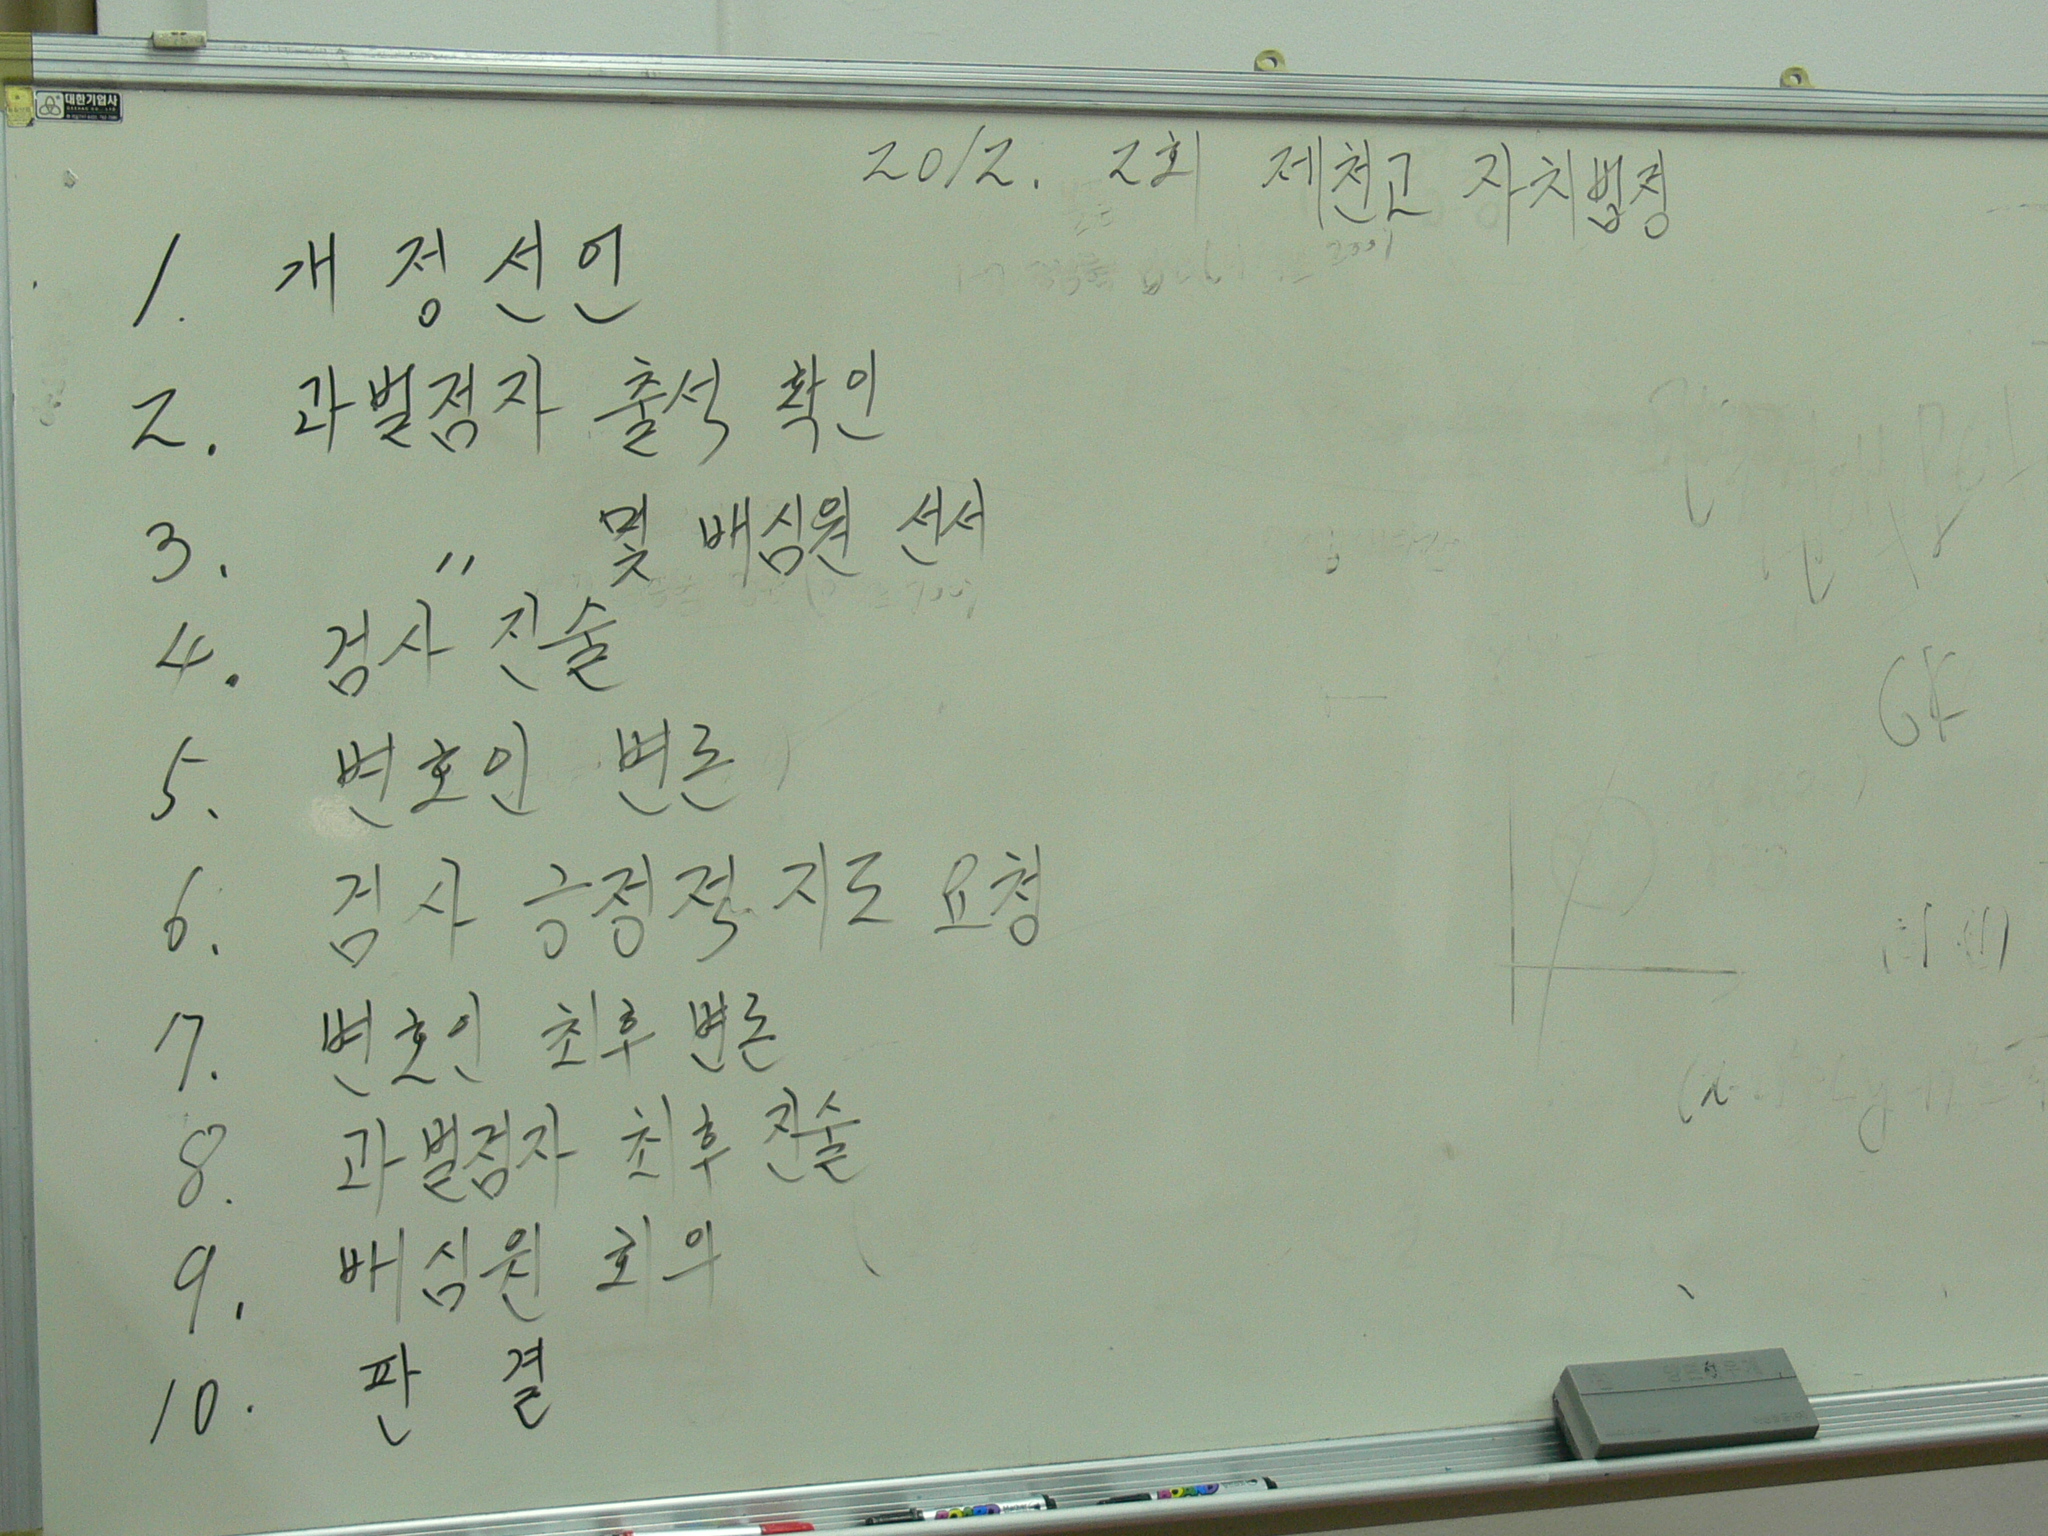 대한기업사
2012. 2회 제천고 자치법정
1. 개정선언
2. 과벌점자 출석 확인
3. 〃 및 배심원 선서
4. 검사 진술
5. 변호인 변론
6. 검사 긍정적 지도 요청
7. 변호인 최후 변론
8. 과벌점자 최후 진술
9. 배심원 회의
10. 판결